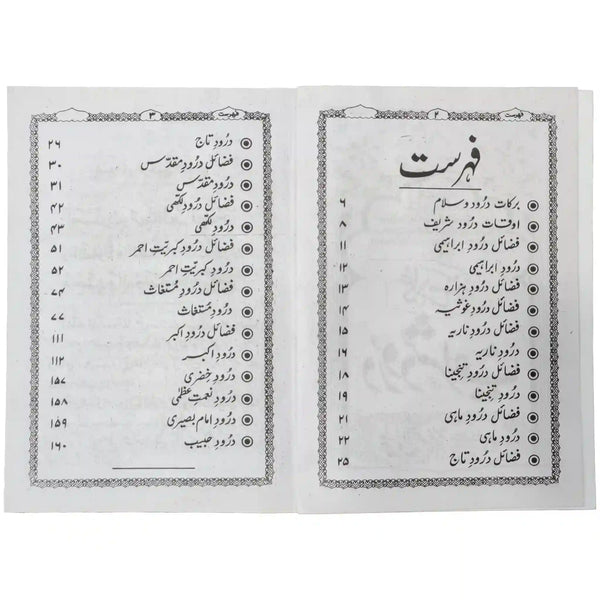 فہرست ۲
فہرست
برکات درود وسلام ۶
اوقات درود شریف ۸
فضائل درود ابراہیمی ۱۱
درود ابراہیمی ۱۲
فضائل درود ہزارہ ۱۳
فضائل درود غوثیہ ۱۴
فضائل درود ناریہ ۱۵
درود ناریہ ۱۶
فضائل درود تنجینا ۱۸
درود تنجینا ۱۹
فضائل درود ماہی ۲۱
درود ماہی ۲۲
فضائل درود تاج ۲۵
فہرست ۳
درود تاج ۲۶
فضائل درود مقدس ۳۰
درود مقدس ۳۱
فضائل درود لکھی ۴۲
درود لکھی ۴۳
فضائل درود کبریت احمر ۵۱
درود کبریت احمر ۵۲
فضائل درود مستغاث ۷۴
درود مستغاث ۷۷
فضائل درود اکبر ۱۱۱
درود اکبر ۱۱۲
درود خضری ۱۵۷
درود نعمت عظمٰی ۱۵۸
درود امام بصیری ۱۵۹
درود حبیب ۱۶۰